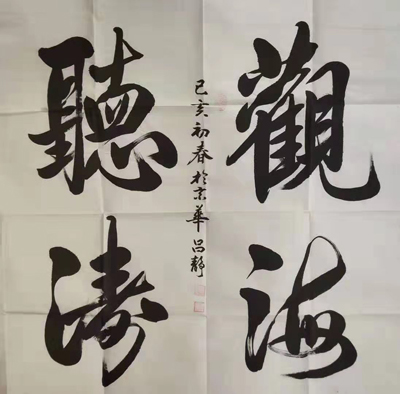 觀海
聽濤
己亥初春於京華呂靜